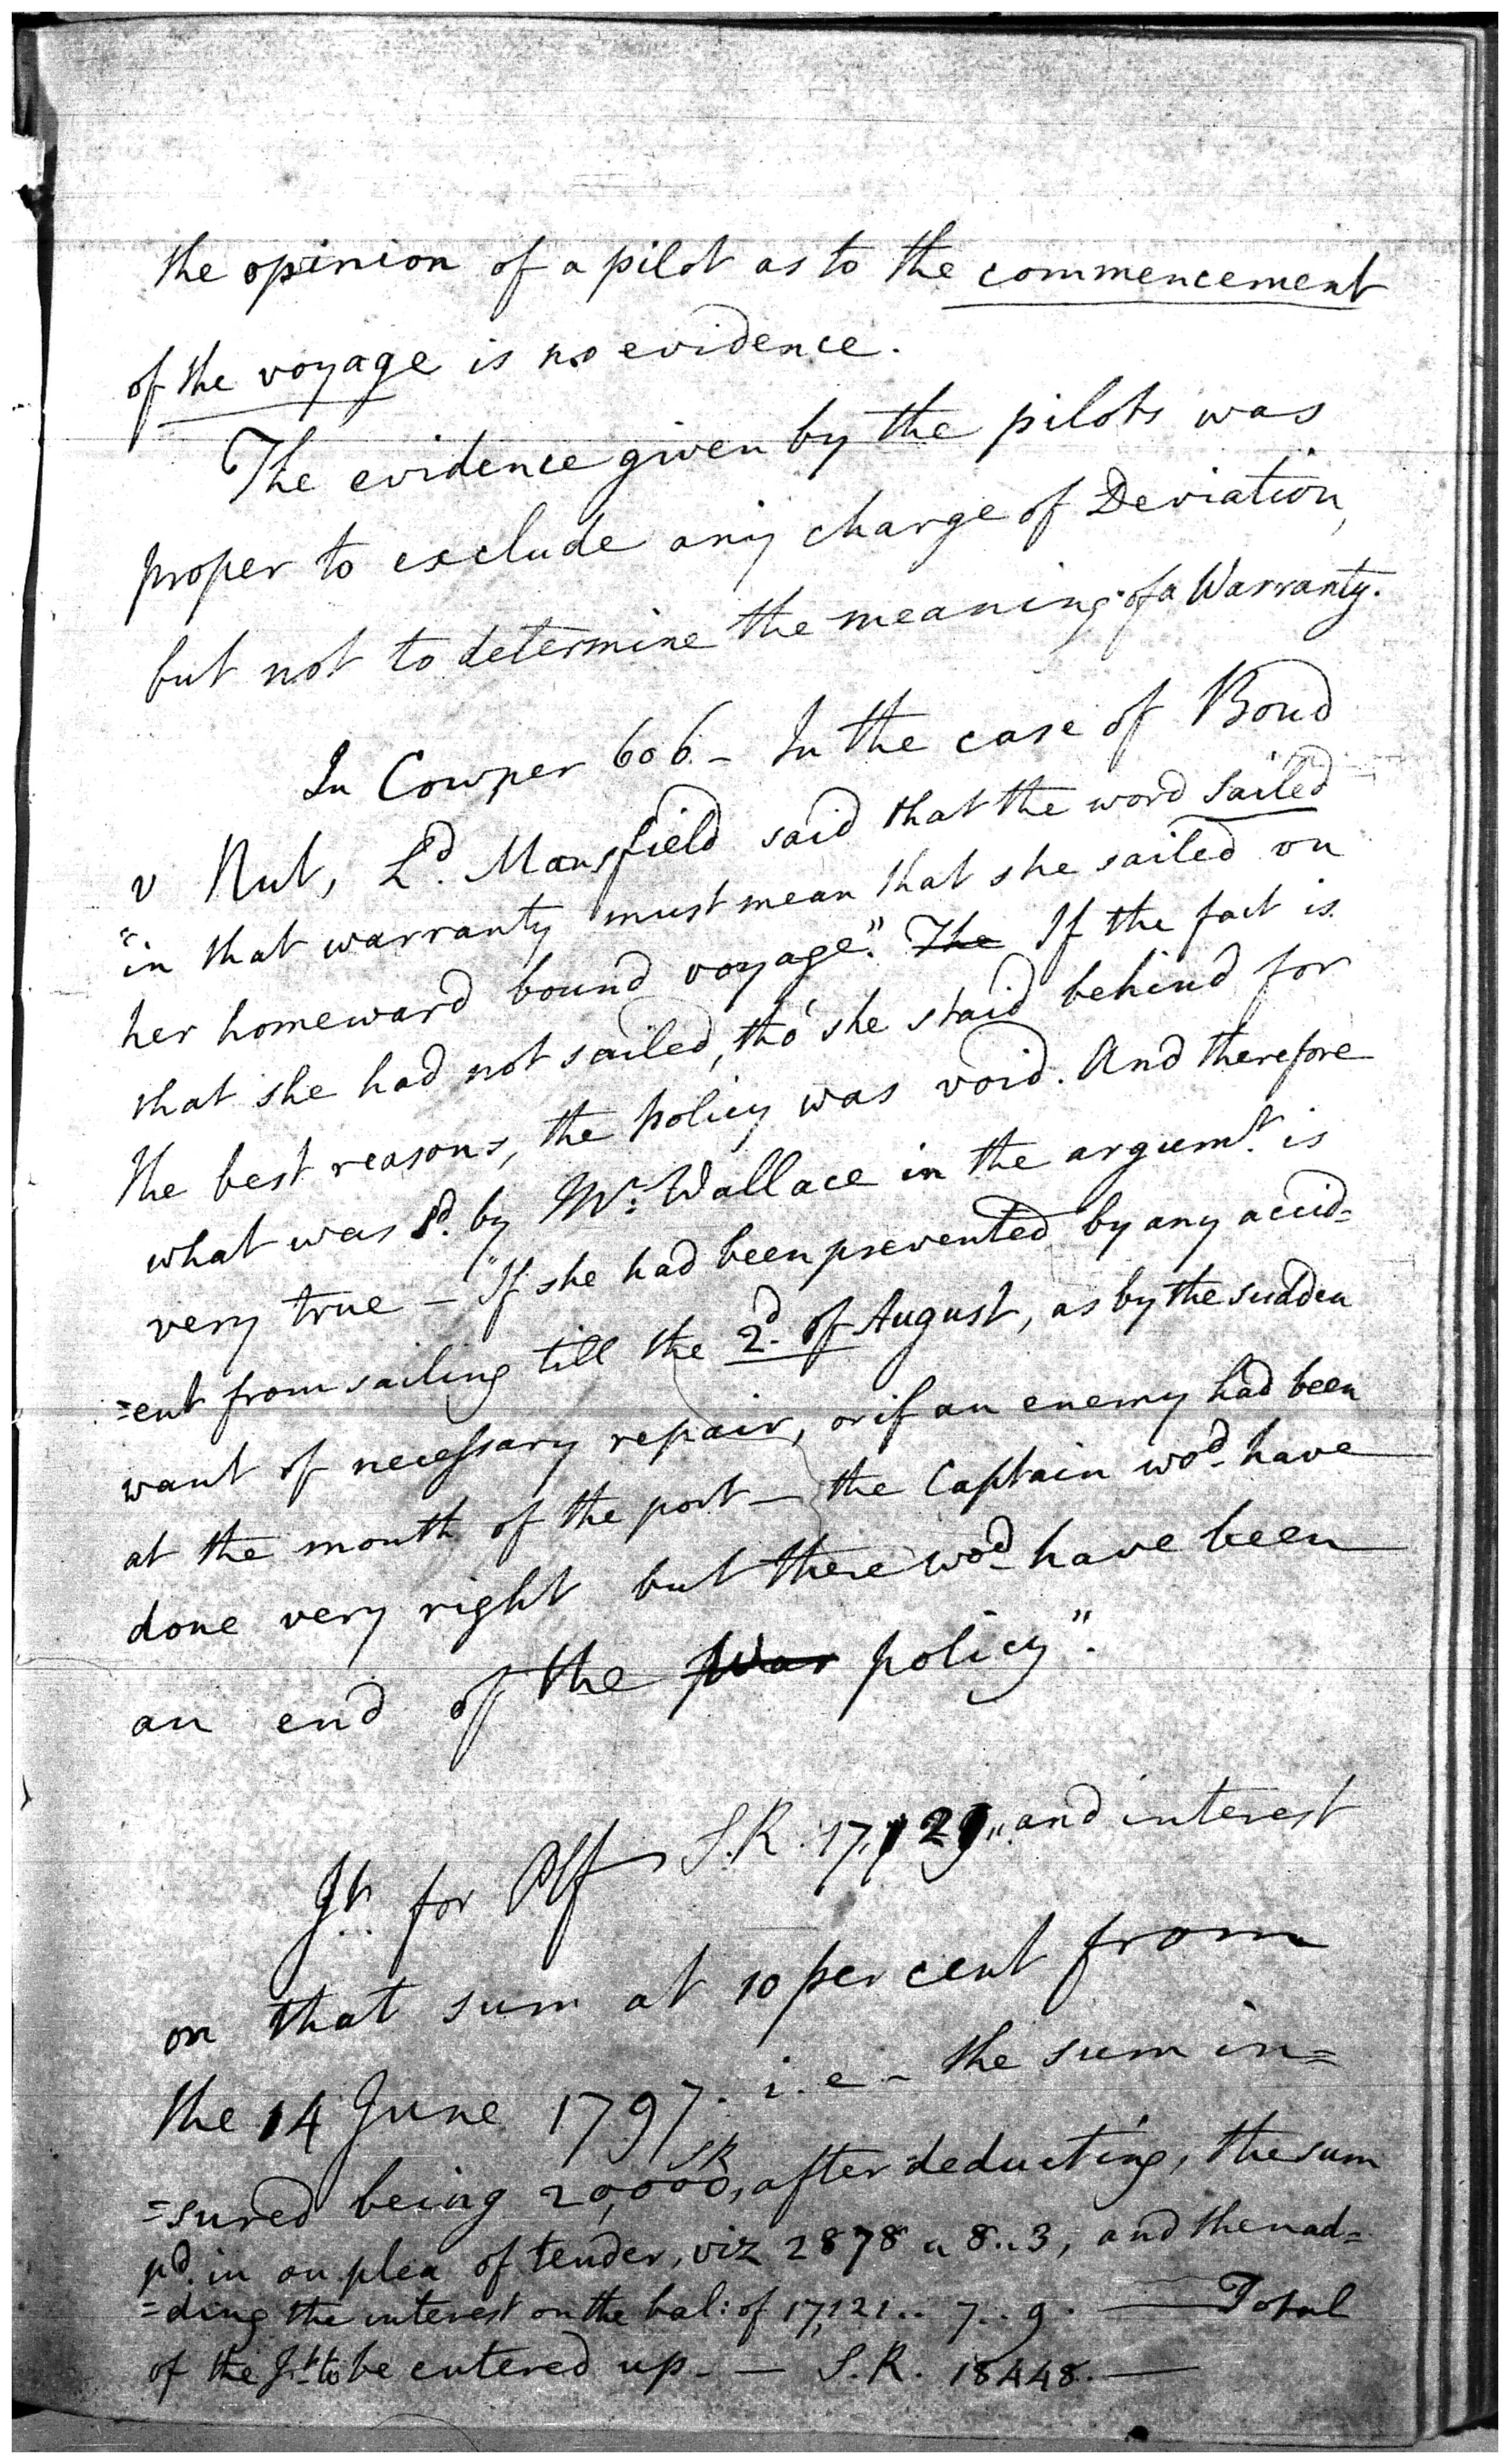 the opinion of a pilot as to the commencement
of the voyage is no evidence.
The evidence given by the pilots was
proper to exclude any charge of Deviation,
but not to determine the meaning of a Warranty.
In Cowper 606. - In the case of Bond
v Nut, Ld. Mansfield said that the word sailed
"in that warranty must mean that she sailed on
her homeward bound voyage". The If the fact is
that she had not sailed, tho' she staid behind for
the best reasons, the policy was void. And therefore
what was sd. by Mr. Wallace in the argumt. is
very true - "If she had been prevented by any accid=
=ent from sailing till the 2d. of August, as by the sudden
want of necessary repair, or if an enemy had been
at the mouth of the port - the Captain wod. have
done very right but there wod. have been
an end of the policy".
Jt. for Plf S.R. 17,121,, and interest
on that sum at 10 per cent from
the 14 June 1797. i.e - the sum in=
=sured being SR 20,000, after deducting, the sum
pd. in on plea of tender, viz 2878 ,, 8..3, and then ad=
=ding the interest on the bal: of 17,121.. 7.. 9. — Total
of the Jt. to be entered up - — S.R. 18448. —